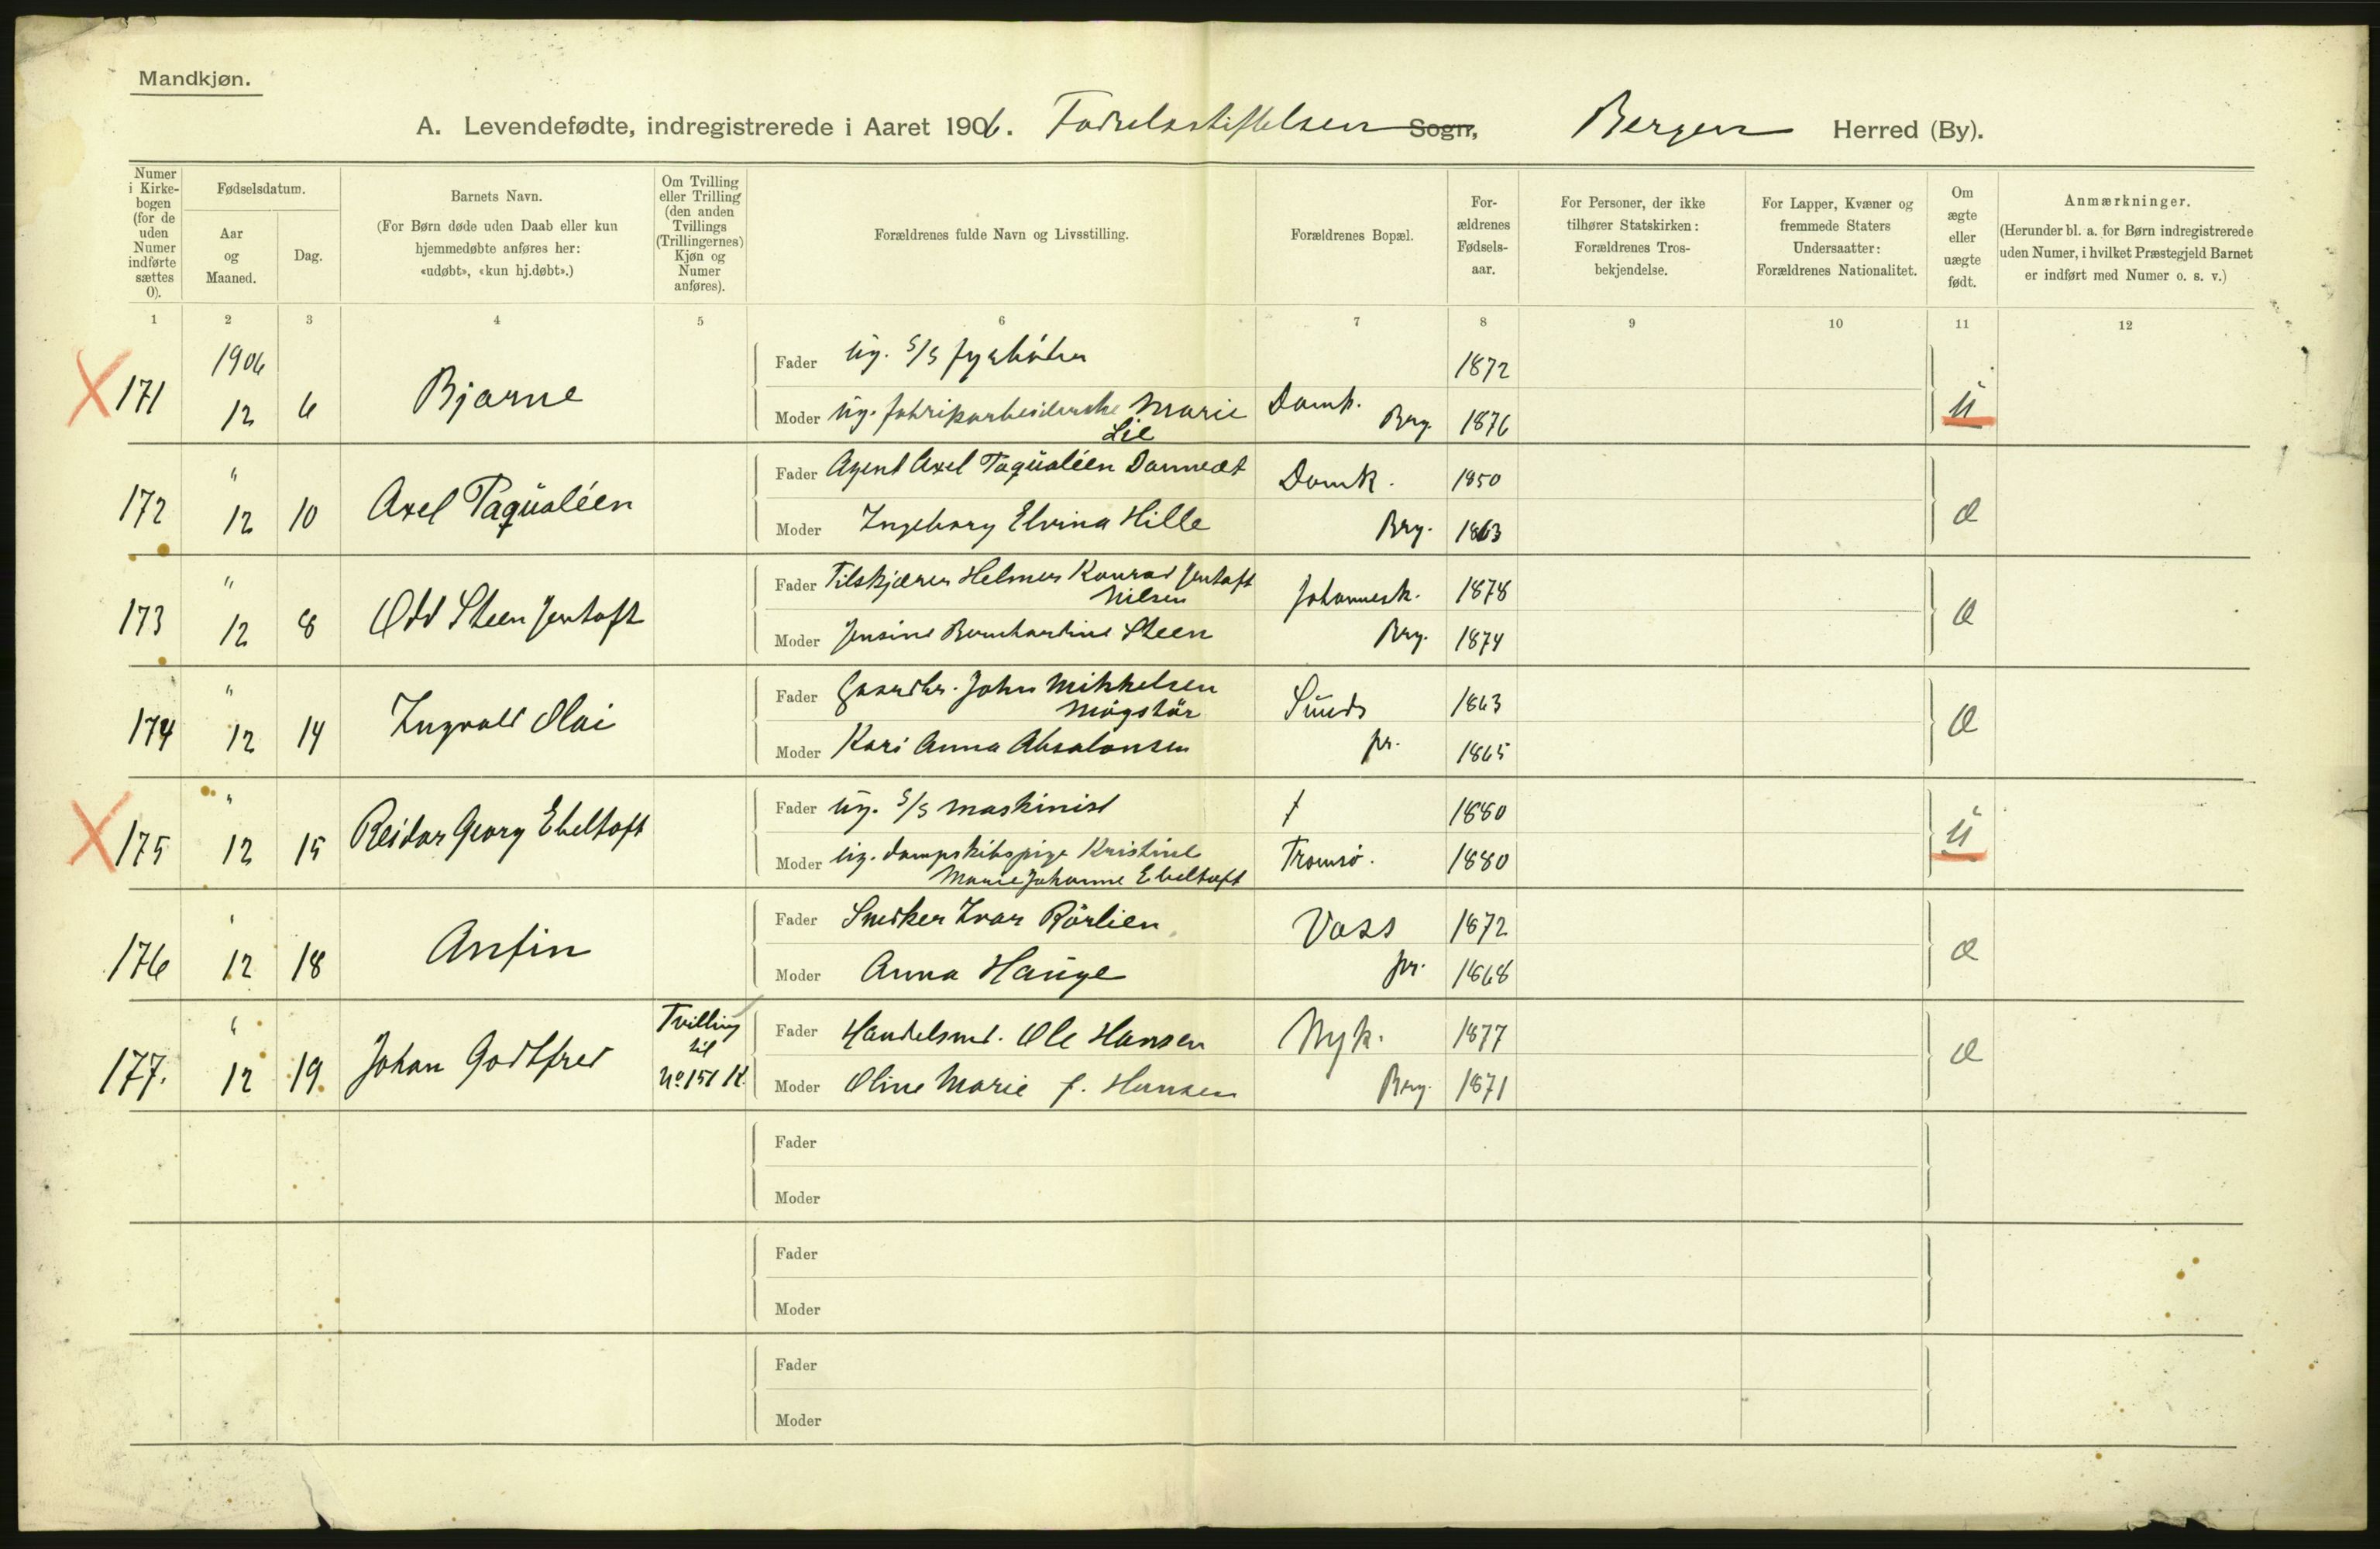 Mandkjøn.
A. Levendefødte, indregistrerede i Aaret 1906. Fødselsstiftelsen Sogn, Bergen Herred (By).
Numer i Kirke-bogen (for de uden Numer indførte sættes 0).
Fødselsdatum.
Aar og Maaned.
Dag.
Barnets Navn.
(For Børn døde uden Daab eller kun hjemmedøbte anføres her: «udøbt», «kun hj.døbt».)
Om Tvilling eller Trilling (den anden Tvillings (Trillingernes) Kjøn og Numer anføres).
Forældrenes fulde Navn og Livsstilling.
Forældrenes Bopæl.
For-ældrenes Fødsels-aar.
For Personer, der ikke tilhører Statskirken: Forældrenes Tros-bekjendelse.
For Lapper, Kvæner og fremmede Staters Undersaatter: Forældrenes Nationalitet.
Om ægte eller uægte født.
Anmærkninger.
(Herunder bl. a. for Børn indregistrerede uden Numer, i hvilket Præstegjeld Barnet er indført med Numer o. s. v.)
1 2 3 4 5 6 7 8 9 10 11 12
1906
Fader ug. S/S fyrbøter 1872
X 171 12 6 Bjarne
Moder ug. fabrikarbeiderske Marie Domk. Brg. 1876 U
Lie
" Fader Agent Axel Paqüaléen Dannevet Domk. 1850
172 12 10 Axel Paqüaléen Æ
Moder Ingeborg Elvina Hille Brg. 1863
" Fader Tilskjærer Helmer Konrad Jentoft Johannesk. 1878
Nilsen
173 12 8 Odd Steen Jentoft Æ
Moder Jensine Bernhardine Steen Brg. 1874
" Fader Gaardbr. John Mikkelsen Sund 1863
Mögstör
174 12 14 Ingvald Olai Æ
Moder Kari Anna Absalonsen pr. 1865
" Fader ug. S/S maskinist † 1880
X 175 12 15 Reidar Georg Ebeltoft U
Moder ug. dampskibspige Kristine Tromsø. 1880
Marie Johanne Ebeltoft
" Fader Snedker Ivar Rörlien Voss 1872
176 12 18 Anfin Æ
Moder Anna Hauge pr. 1868
" Tvilling Fader Handelsmd. Ole Hansen Nyk. 1877
til
177. 12 19. Johan Godtfred Æ
No 151 K. Moder Oline Marie f. Hansen Brg. 1871
Fader
Moder
Fader
Moder
Fader
Moder